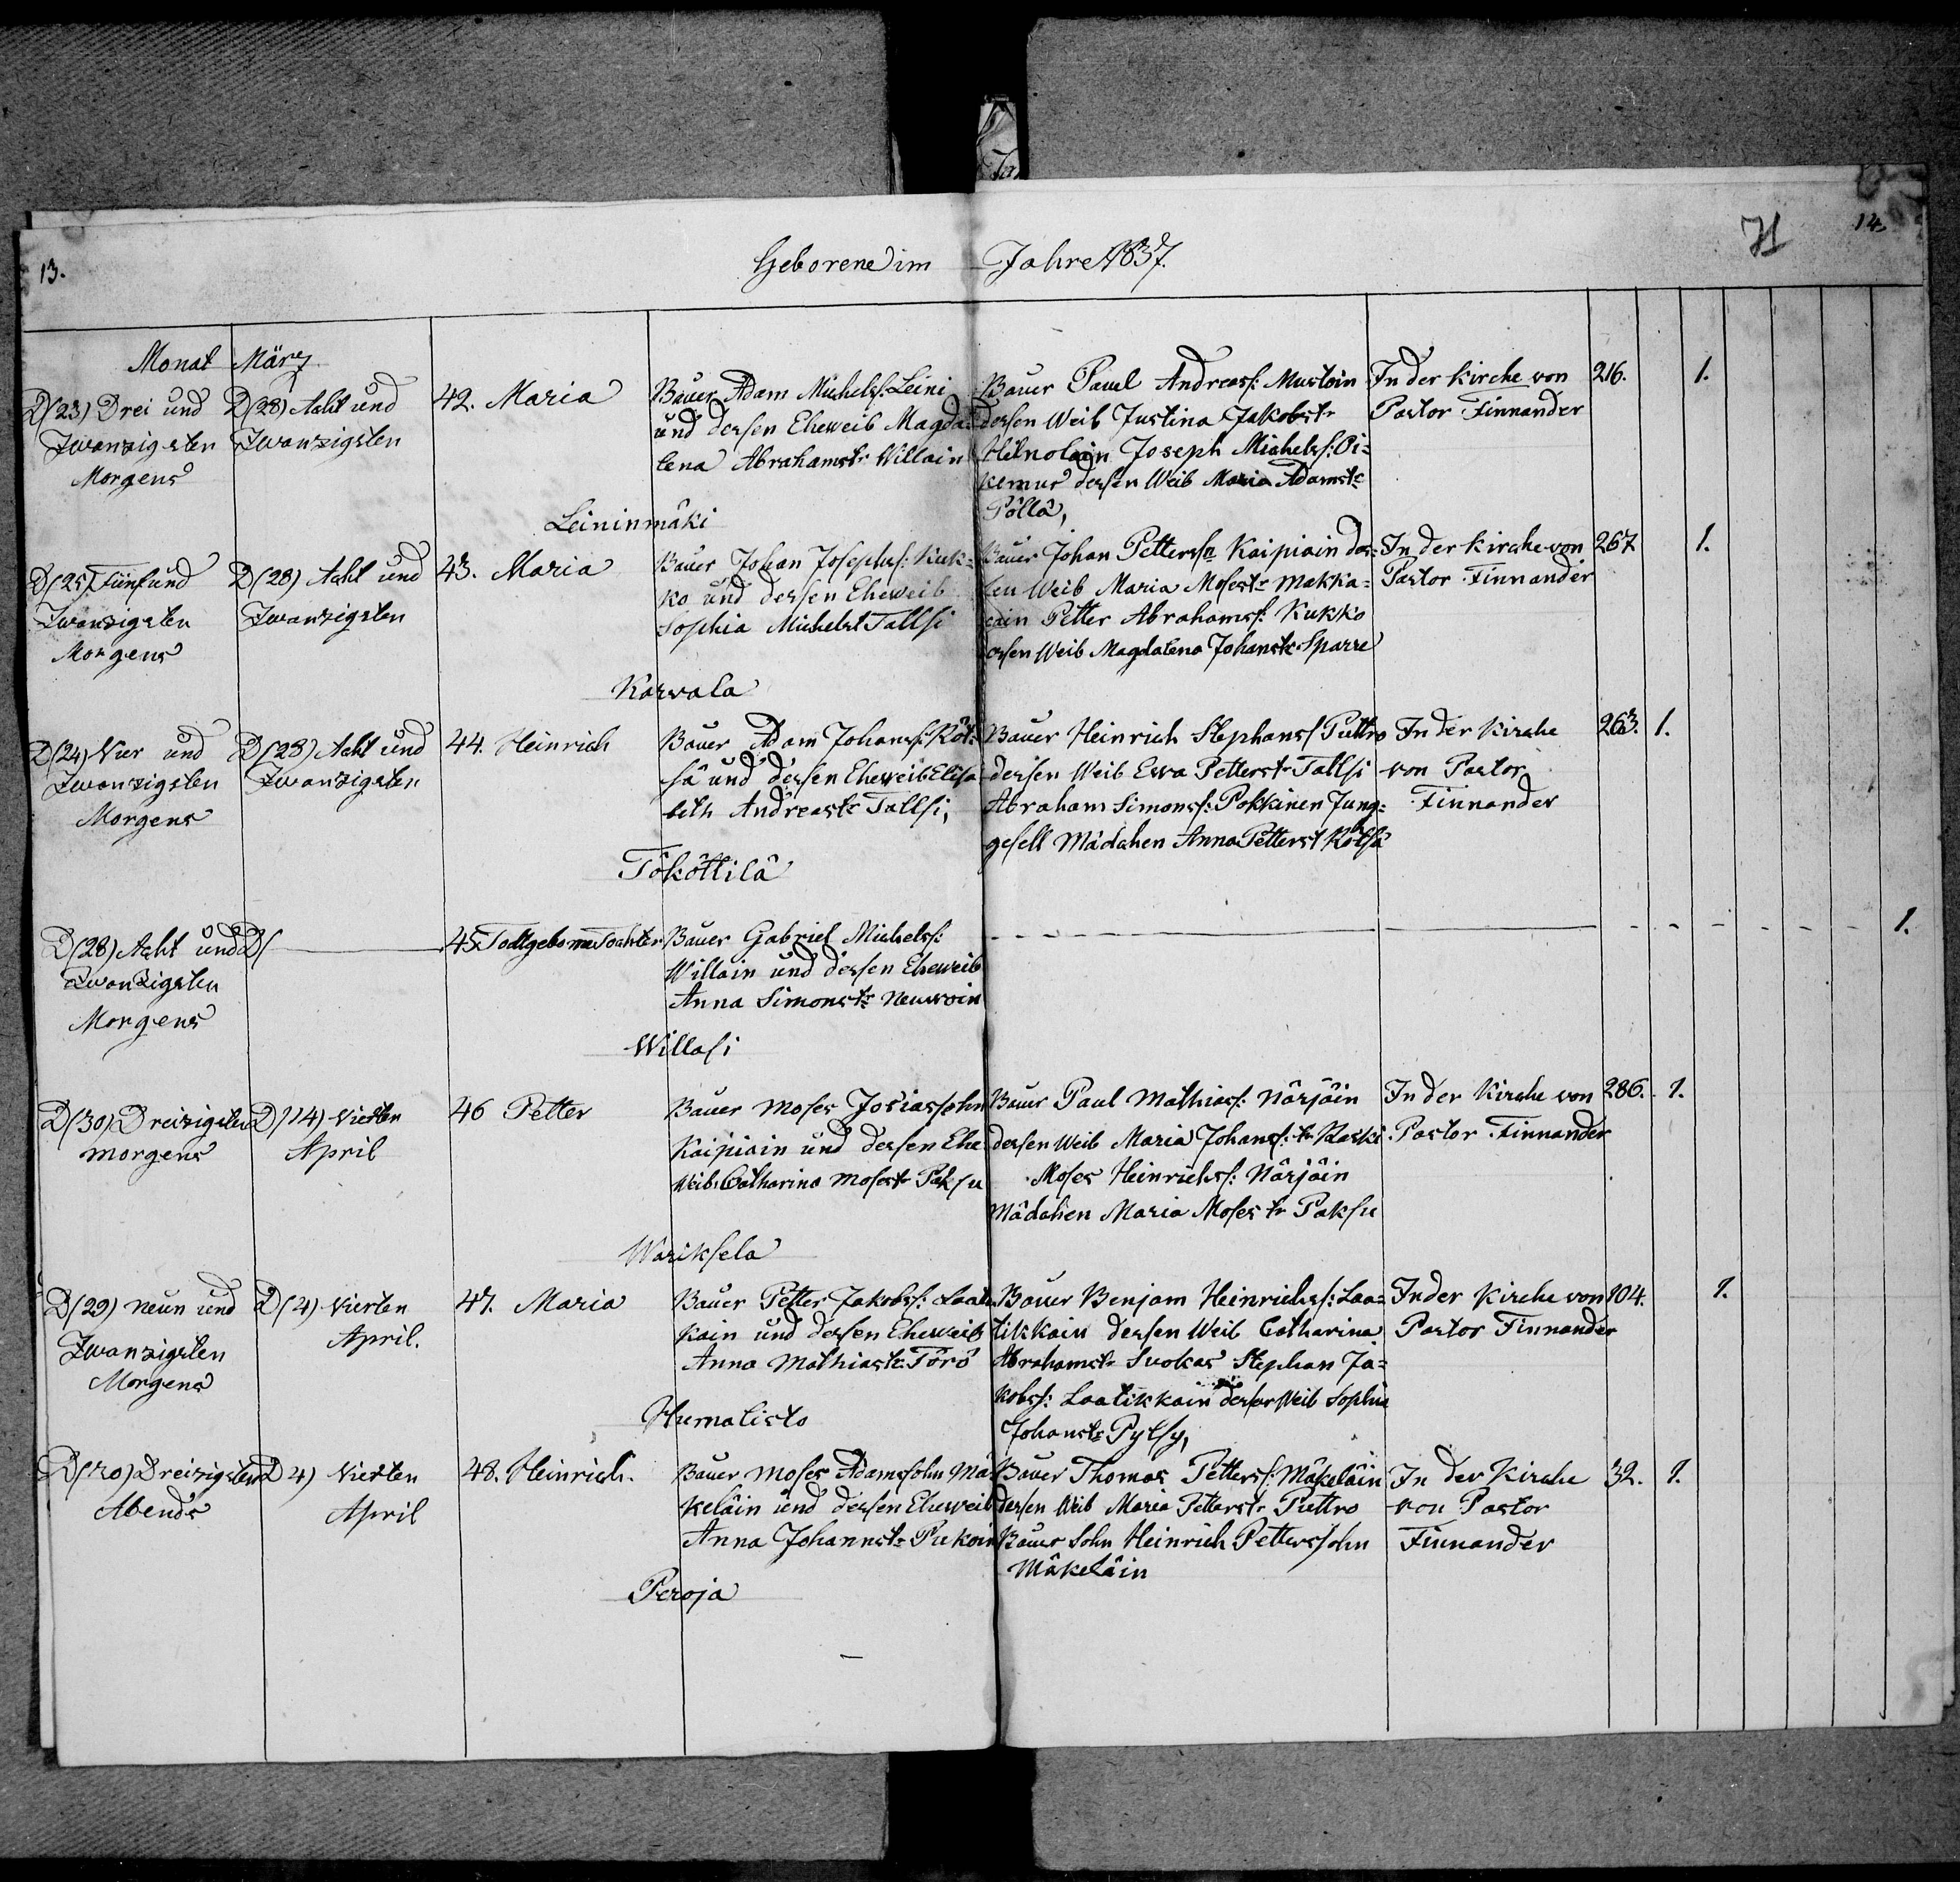 13.
Geborene im Jahre 1837.
14.
Monat März
D (23) Drei und
Zwanzigsten
Morgens
D (28) Acht und
Zwanzigsten
42. Maria
Bauer Adam Michels: Leini
und dessen Eheweib Magda=
lena Abrahamstr Willain
Bauer Paul Andreass: Mustoin
dessen Weib Justina Jakobstr
Joseph Michelss: Oi=
kemus dessen Weib Maria Adamstr
Pöllä,
In der Kirche von
Pastor Finnander
216.
1.
Leininmäki
D (25) Fünf und
Zwanzigsten
Morgens
D (28) Acht und
Zwanzigsten
43. Maria
Bauer Johan Josephss: Kuk=
ko und dessen Eheweib
Sophia Michelst Tallsi
Bauer Johan Petterssn Kaipiain des=
sen Weib Maria Mosestr Makka=
rain Petter Abrahamss: Kukko
dessen Weib Magdalena Johanstr Sparre
In der Kirche von
Pastor Finnander
267
1.
Karvala
D (24) Vier und
Zwanzigsten
Morgens
D (28) Acht und
Zwanzigsten
44. Heinrich
Bauer Adam Johanss: Röt=
sä und dessen Eheweib Elisa
beth Andreastr Tallsi,
Bauer Heinrich Stephanss Puttro
dessen Weib Ewa Petterstr Tallsi
Abraham Simonss: Pokkinen Jung=
gesell Mädchen Anna Petterst Rötsä
In der Kirche
von Pastor
Finnander
263.
1.
Tököttilä
D (28) Acht und
Zwanzigsten
Morgens
D (
45. Todtgeborne Tochter
Bauer Gabriel Michelss:
Willain und dessen Eheweib
Anna Simonstr Neuvoin
1.
Willasi
D (30) Dreizigsten
morgens
D (4) Vierten
April
46 Petter
Bauer Moses Josiassohn
Kaipiain und dessen Ehe
Weib Catharina Mosestr Paksu
Bauer Paul Mathiass: Närjäin
dessen Weib Maria Johanss: tr Kaski
Moses Heinrichss: Närjäin
Mädchen Maria Moses tr Paksu
In der Kirche von
Pastor Finnander
286.
1.
Wariksela
D (29) neun und
Zwanzigsten
Morgens
D (4) Vierten
April.
47. Maria
Bauer Petter Jakobss: Laatik
kain und dessen Eheweib
Anna Mathiastr Törö
Bauer Benjam Heinrichss: Laa=
tikkain dessen Weib Catharina
Abrahamstr Suokas Stephan Ja=
kobss: Laatikkain dessen Weib Sophia
Johanstr Pylsy,
In der Kirche von
Pastor Finnander
104.
1.
Humalisto
D (30) Dreizigsten
Abends
D 4) Vierten
April
48. Heinrich.
Bauer Moses Adamssohn Mä
keläin und dessen Eheweib
Anna Johannstr Pukain
Bauer Thomas Petterss: Mäkeläin
dessen Weib Maria Petterstr Puttro
Bauer Sohn Heinrich Petterssohn
Mäkeläin
In der Kirche
von Pastor
Finnander
32.
1.
Peroja